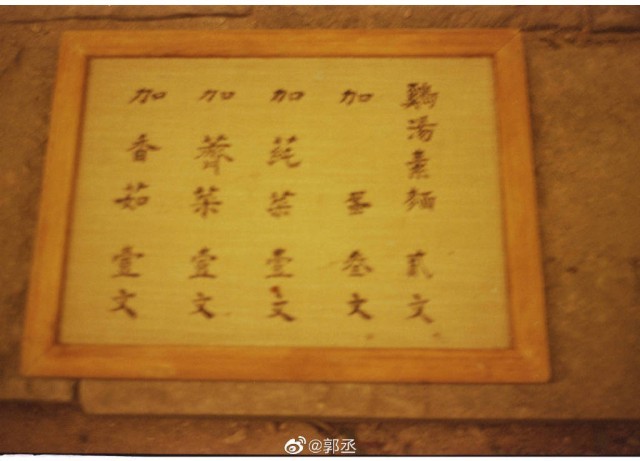 鷄湯素麵 貳文
加 蛋 叁文
加莼菜 壹文
加薺菜 壹文
加香茹 壹文
@郭丞